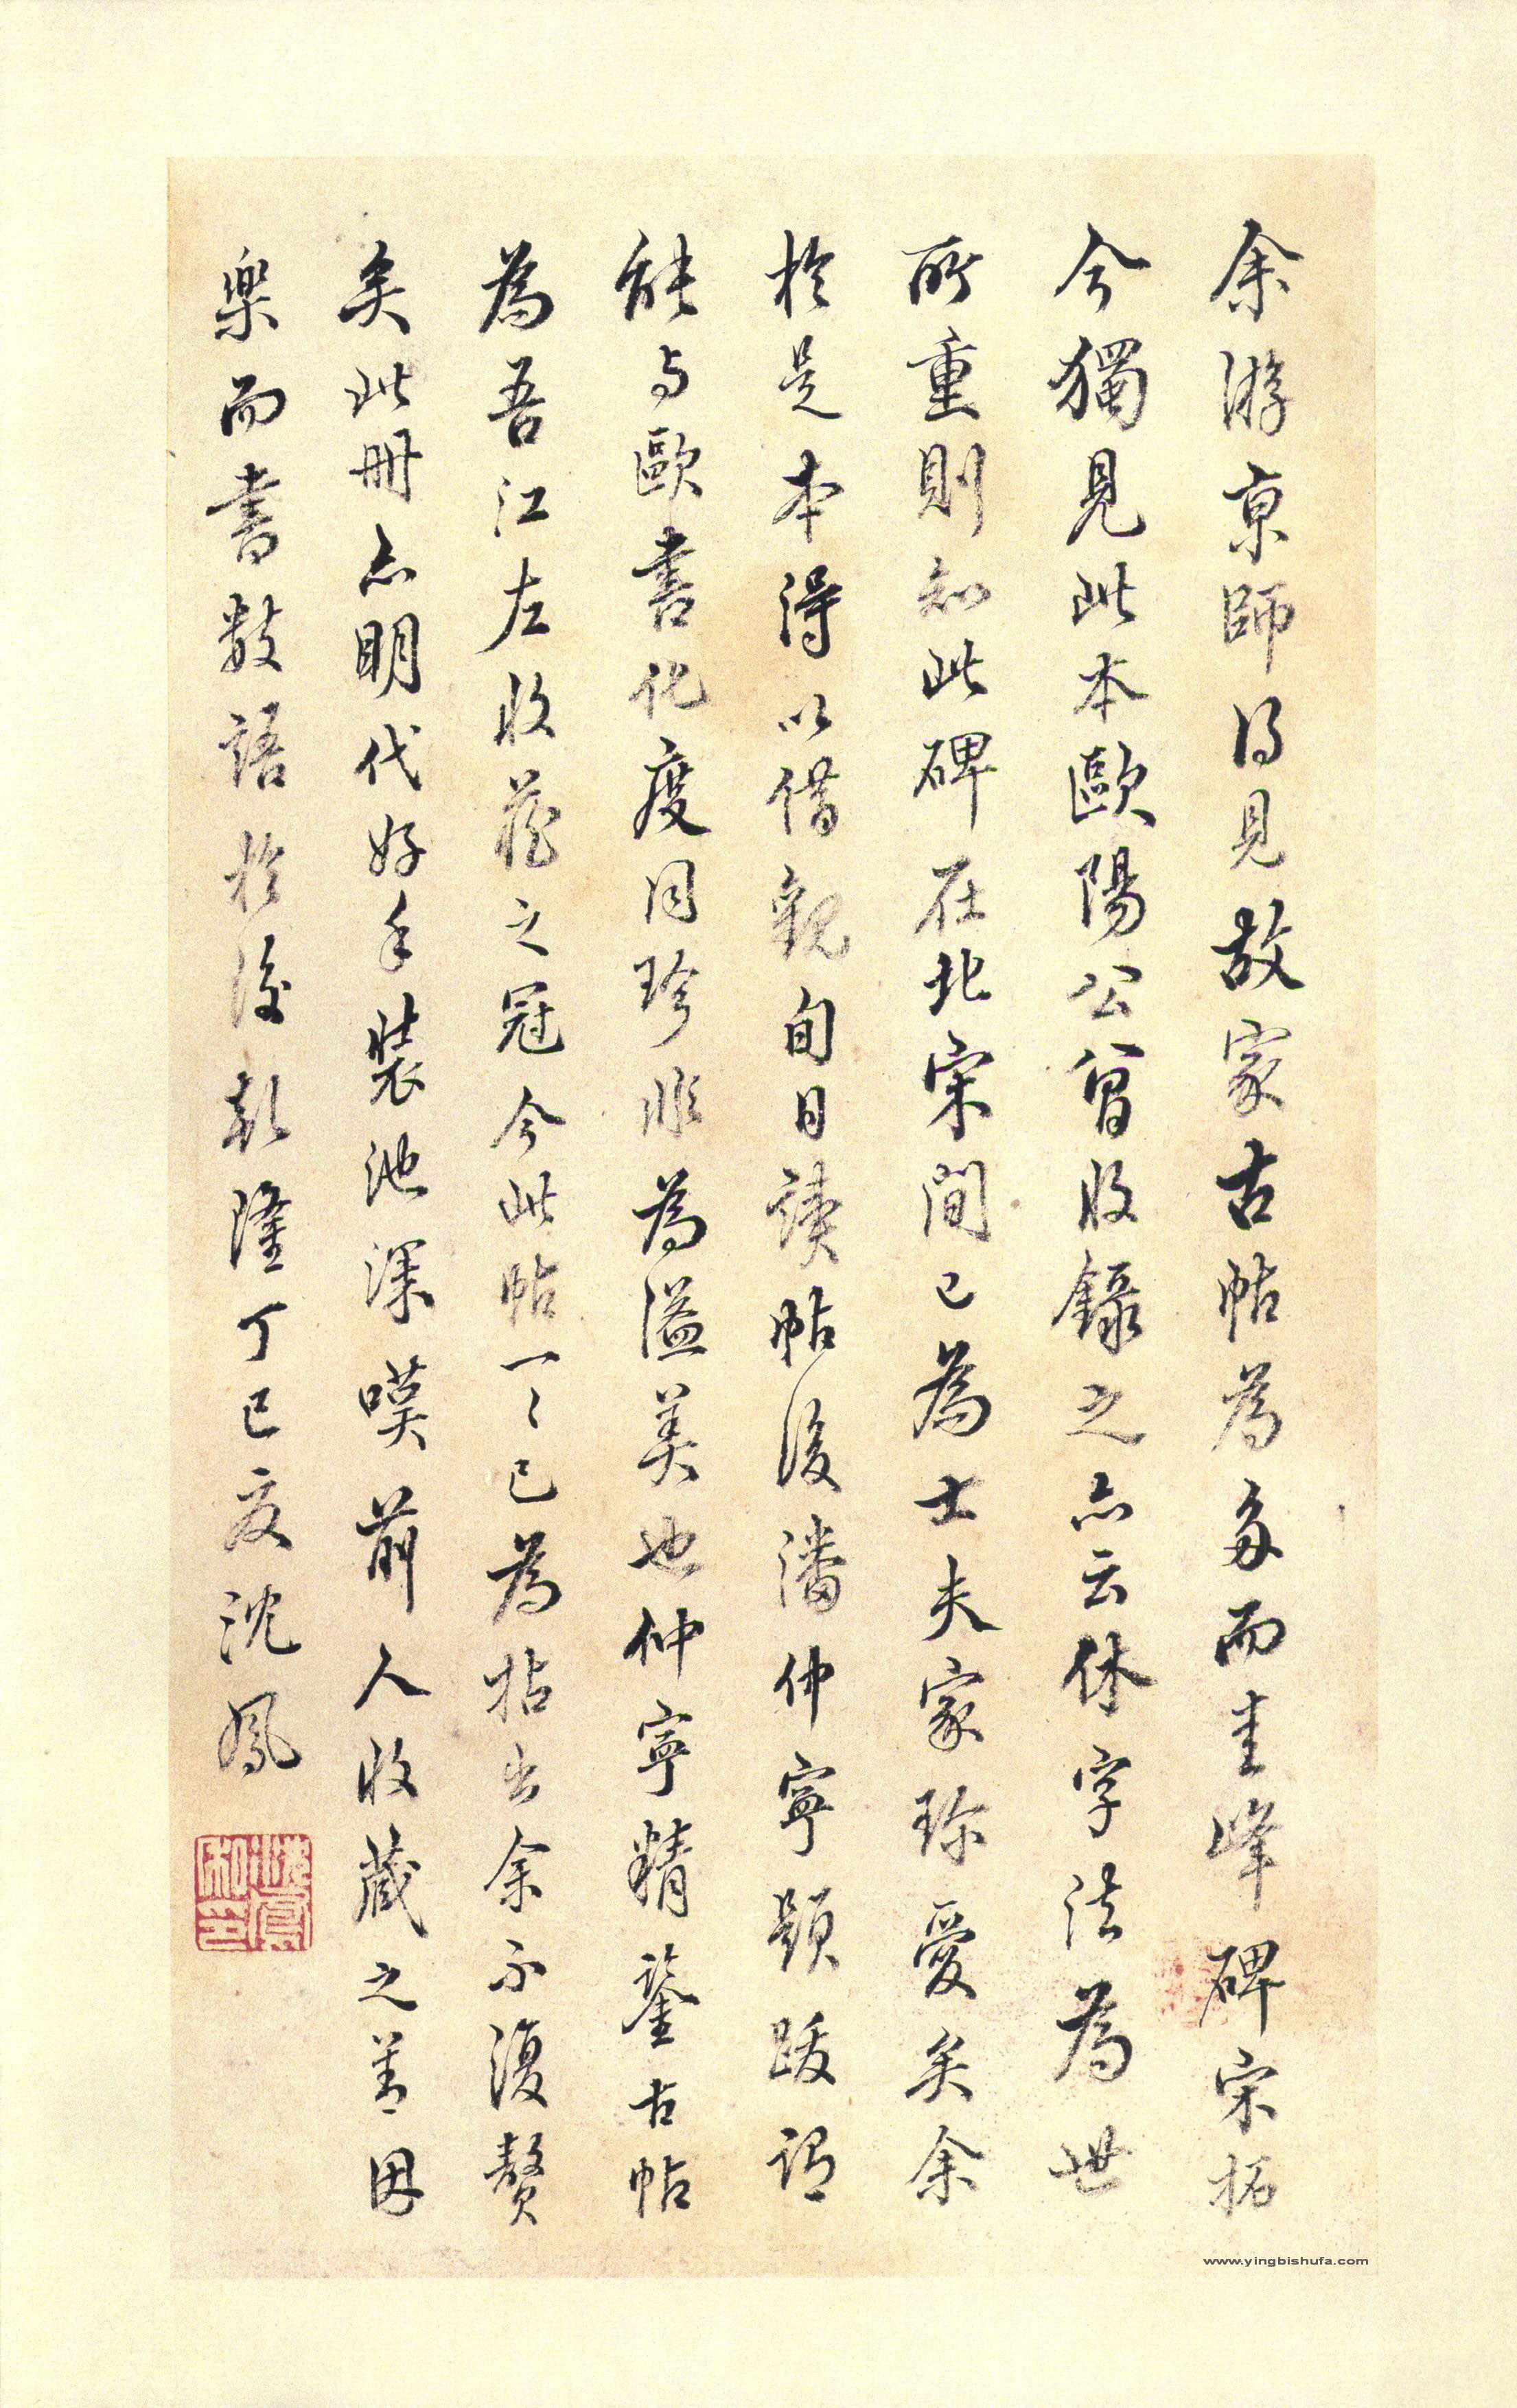 余游京師得見故家古帖為多而圭峰碑宋拓
今獨見此本歐陽公曾收錄之亦云休字法為世
所重則知此碑在北宋間已為士夫家珍愛矣余
於是本得以借觀旬日讀帖後潘仲寧題跋謂
能与歐書化度同珍非為溢美也仲寧精鑒古帖
為吾江左收藏之冠今此帖一〻已為拈出余不復贅
矣此冊亦明代好手裝池深嘆前人收藏之善因
樂而書數語於後乾隆丁巳夏沈鳳
www.yingbishufa.com